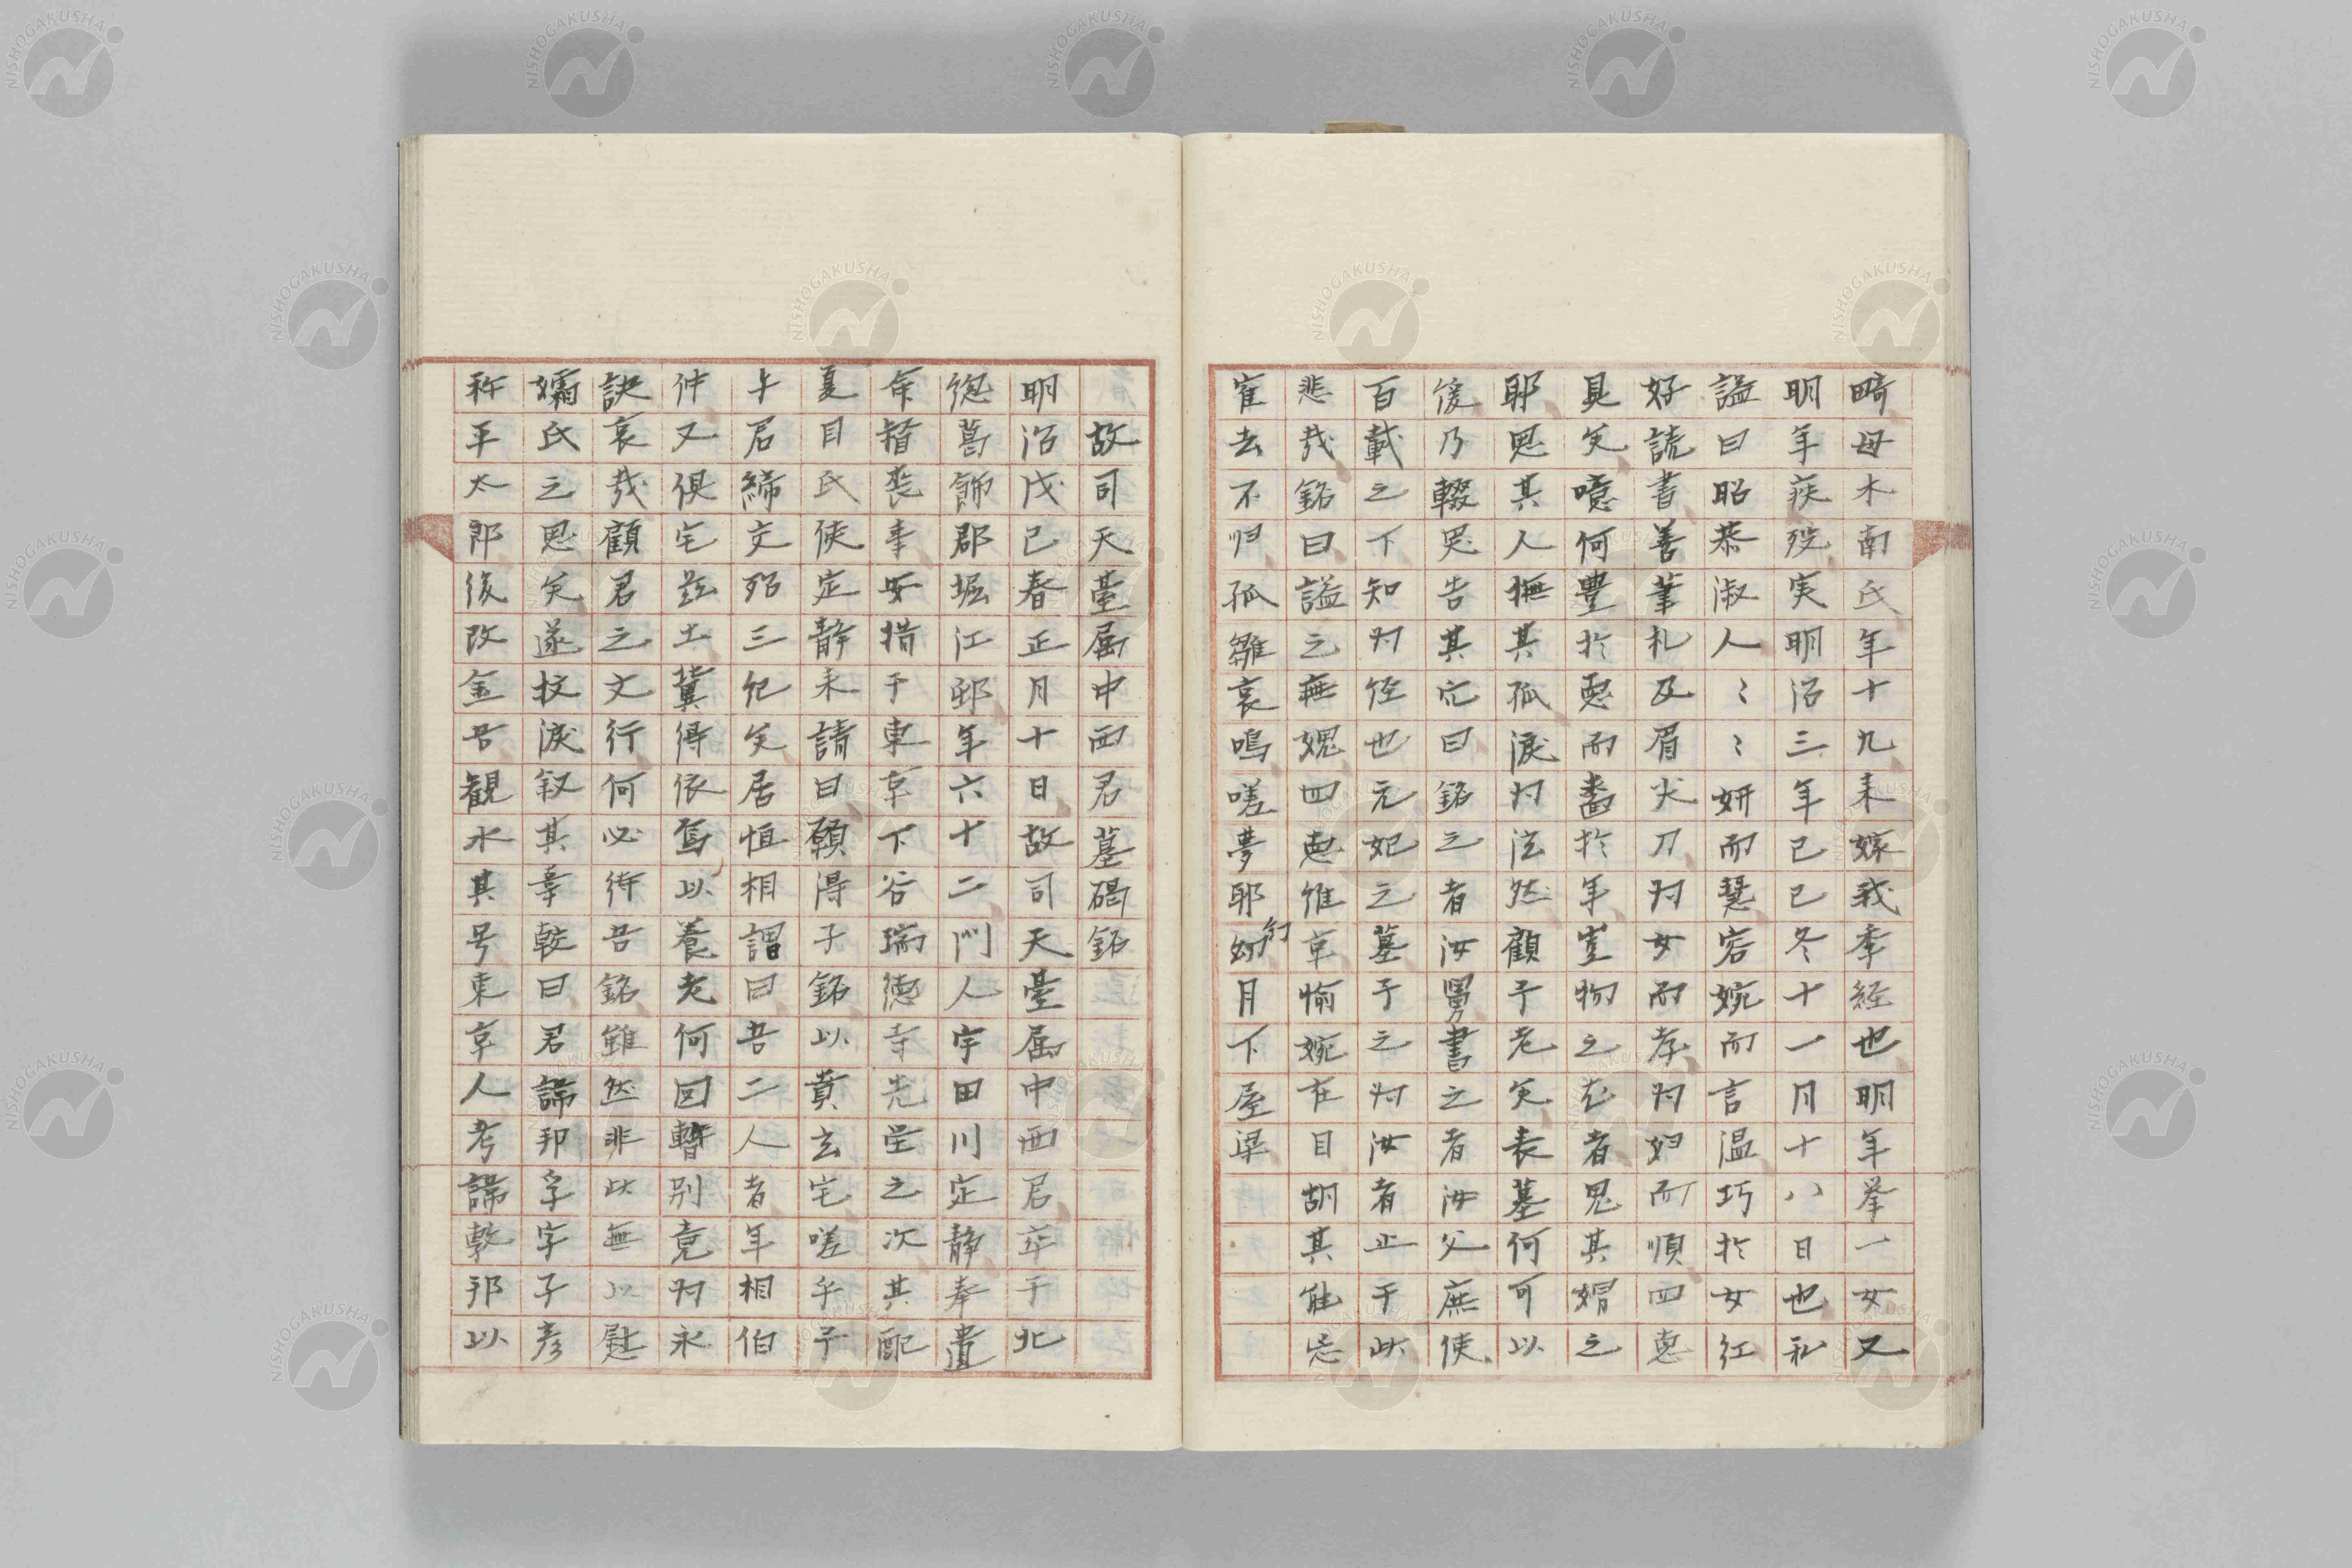 畸母木南氏年十九来嫁我季経也明年挙一女又
明年疾歿実明治三年己巳冬十一月十八日也私
謚曰昭恭淑人〻〻妍而慧容婉而言温巧於女紅
好読書善筆札及眉尖刀为女而孝为婦而順四悳
具矣噫何豊於悳而嗇於年豈物之尤者鬼其媢之
耶思其人撫其孤涙为泫然顧予老矣表墓何可以
後乃輟哭告其穴曰銘之者汝舅書之者汝父庶使
百載之下知为経也元妃之墓予之为汝者止于此
悲哉銘曰謚之無媿四悳維京愉婉在目胡其能忘
隺去不归孤雛哀鳴嗟夢耶幻月下屋梁
故司天臺属中西君墓碣銘
明治戊己春正月十日故司天臺属中西君卒于北
総葛飾郡堀江邨年六十二門人宇田川定静奉遺
命皆喪事安措于東京下谷瑞徳寺先塋之次其配
夏目氏使定静来請曰願得子銘以賁玄宅嗟乎予
与君締交殆三紀矣居恒相謂曰吾二人者年相伯
仲又俱宅茲土冀得依焉以養老何図暫別竟为永
訣哀哉顧君之文行何必待吾銘雖然非此無以慰
孀氏之思矣遂抆涙叙其辜較曰君諱邦孚字子彦
称平太郎後改金吾観水其号東京人考諱敷邦以